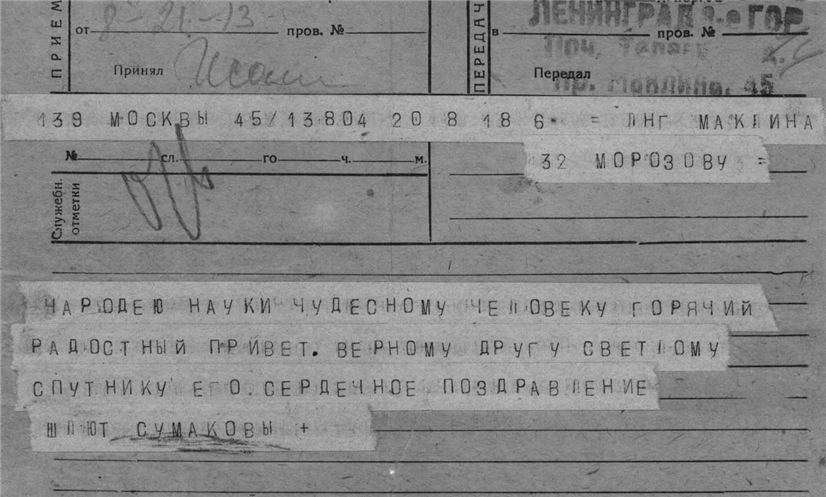 ПРИЕМ
8- 21-13-
от пров. №
Принял
ПЕРЕДАЧ
ЛЕНИНГРАД ГОР
Поч.
в пров. №
Передал
пр. Маклина, 45
139 МОСКВЫ 45/13804 20 8 18 6- = ЛНГ МАКЛИНА
32 МОРОЗОВУ =
№ сл. го ч. м.
Служебн. отметки
ЧАРОДЕЮ НАУКИ ЧУДЕСНОМУ ЧЕЛОВЕКУ ГОРЯЧИЙ
РАДОСТНЫЙ ПРИВЕТ. ВЕРНОМУ ДРУГУ СВЕТЛОМУ
СПУТНИКУ ЕГО.СЕРДЕЧНОЕ ПОЗДРАВЛЕНИЕ
ШЛЮТ СУМАКОВЫ +